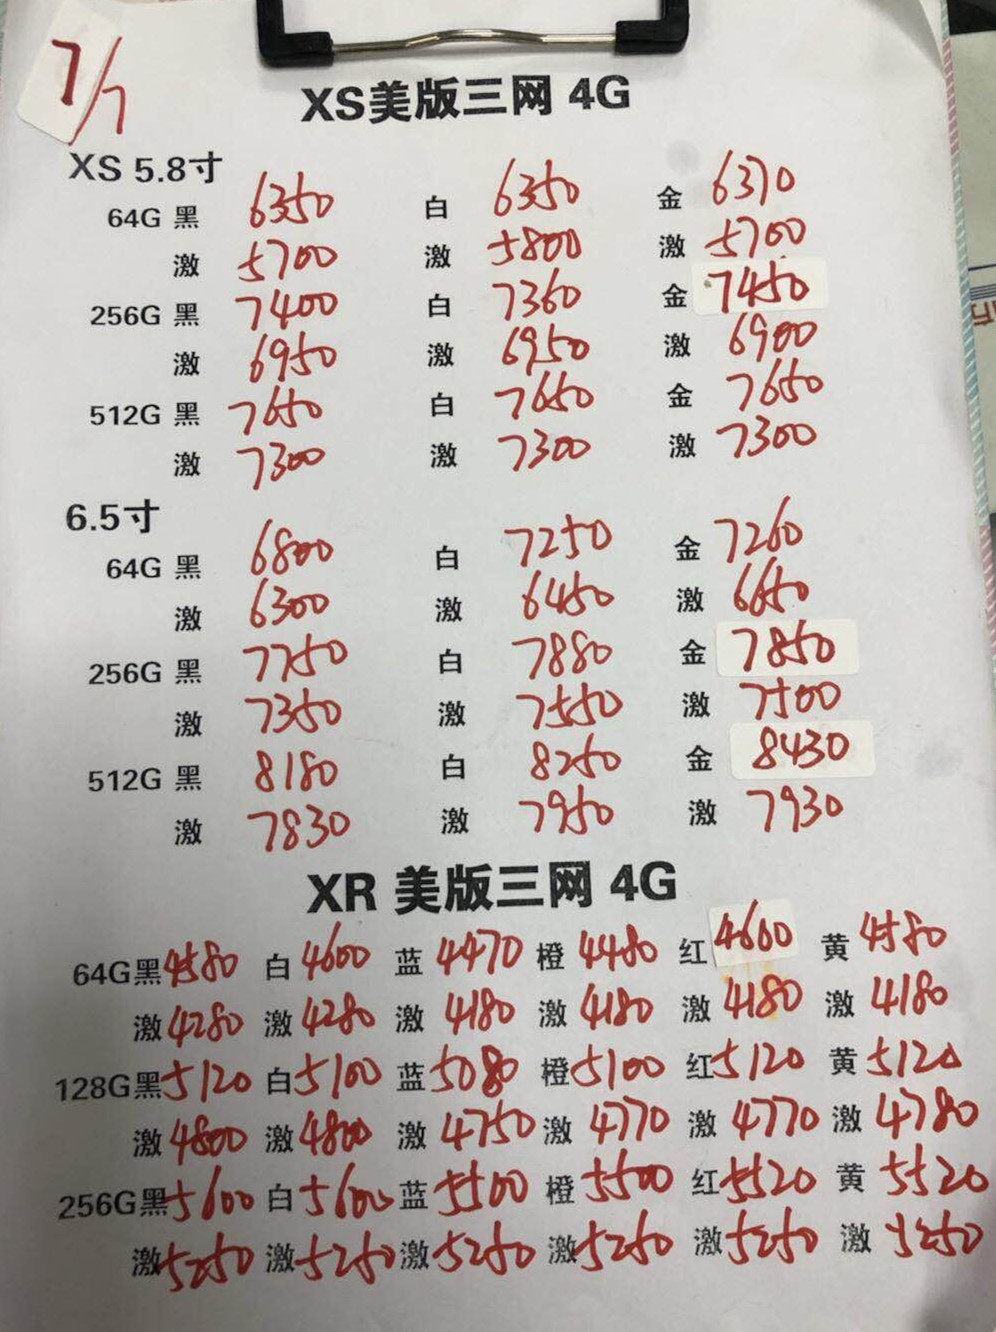 7/7
XS美版三网 4G
XS 5.8寸
64G 黑 6350 白 6350 金 6370
激 5700 激 5800 激 5700
256G 黑 7400 白 7360 金 7450
激 6950 激 6950 激 6900
512G 黑 7650 白 7650 金 7650
激 7300 激 7300 激 7300
6.5寸
64G 黑 6800 白 7250 金 7260
激 6300 激 6450 激 6650
256G 黑 7750 白 7880 金 7850
激 7350 激 7550 激 7500
512G 黑 8180 白 8250 金 8430
激 7830 激 7950 激 7930
XR 美版三网 4G
64G黑 4580 白 4600 蓝 4470 橙 4480 红 4600 黄 4580
激 4280 激 4280 激 4180 激 4180 激 4180 激 4180
128G黑 5120 白 5100 蓝 5080 橙 5100 红 5120 黄 5120
激 4800 激 4800 激 4750 激 4770 激 4770 激 4780
256G黑 5600 白 5600 蓝 5500 橙 5500 红 5520 黄 5520
激 5250 激 5250 激 5250 激 5250 激 5250 激 5250